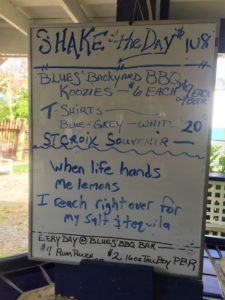 SHAKE of the DAY $108
BLUES' BACKYARD BBQ
KOOZIES - $6 EACH $9 EACH
W/BEER
T-SHIRTS
BLUE - GREY - WHITE $20
ST CROIX SOUVENIR
When life hands
me lemons
I reach right over for
my salt & tequila
EVERY DAY @ BLUES' BBQ BAR
$4 RUM PUNCH $2 16oz TALLBOY PBR